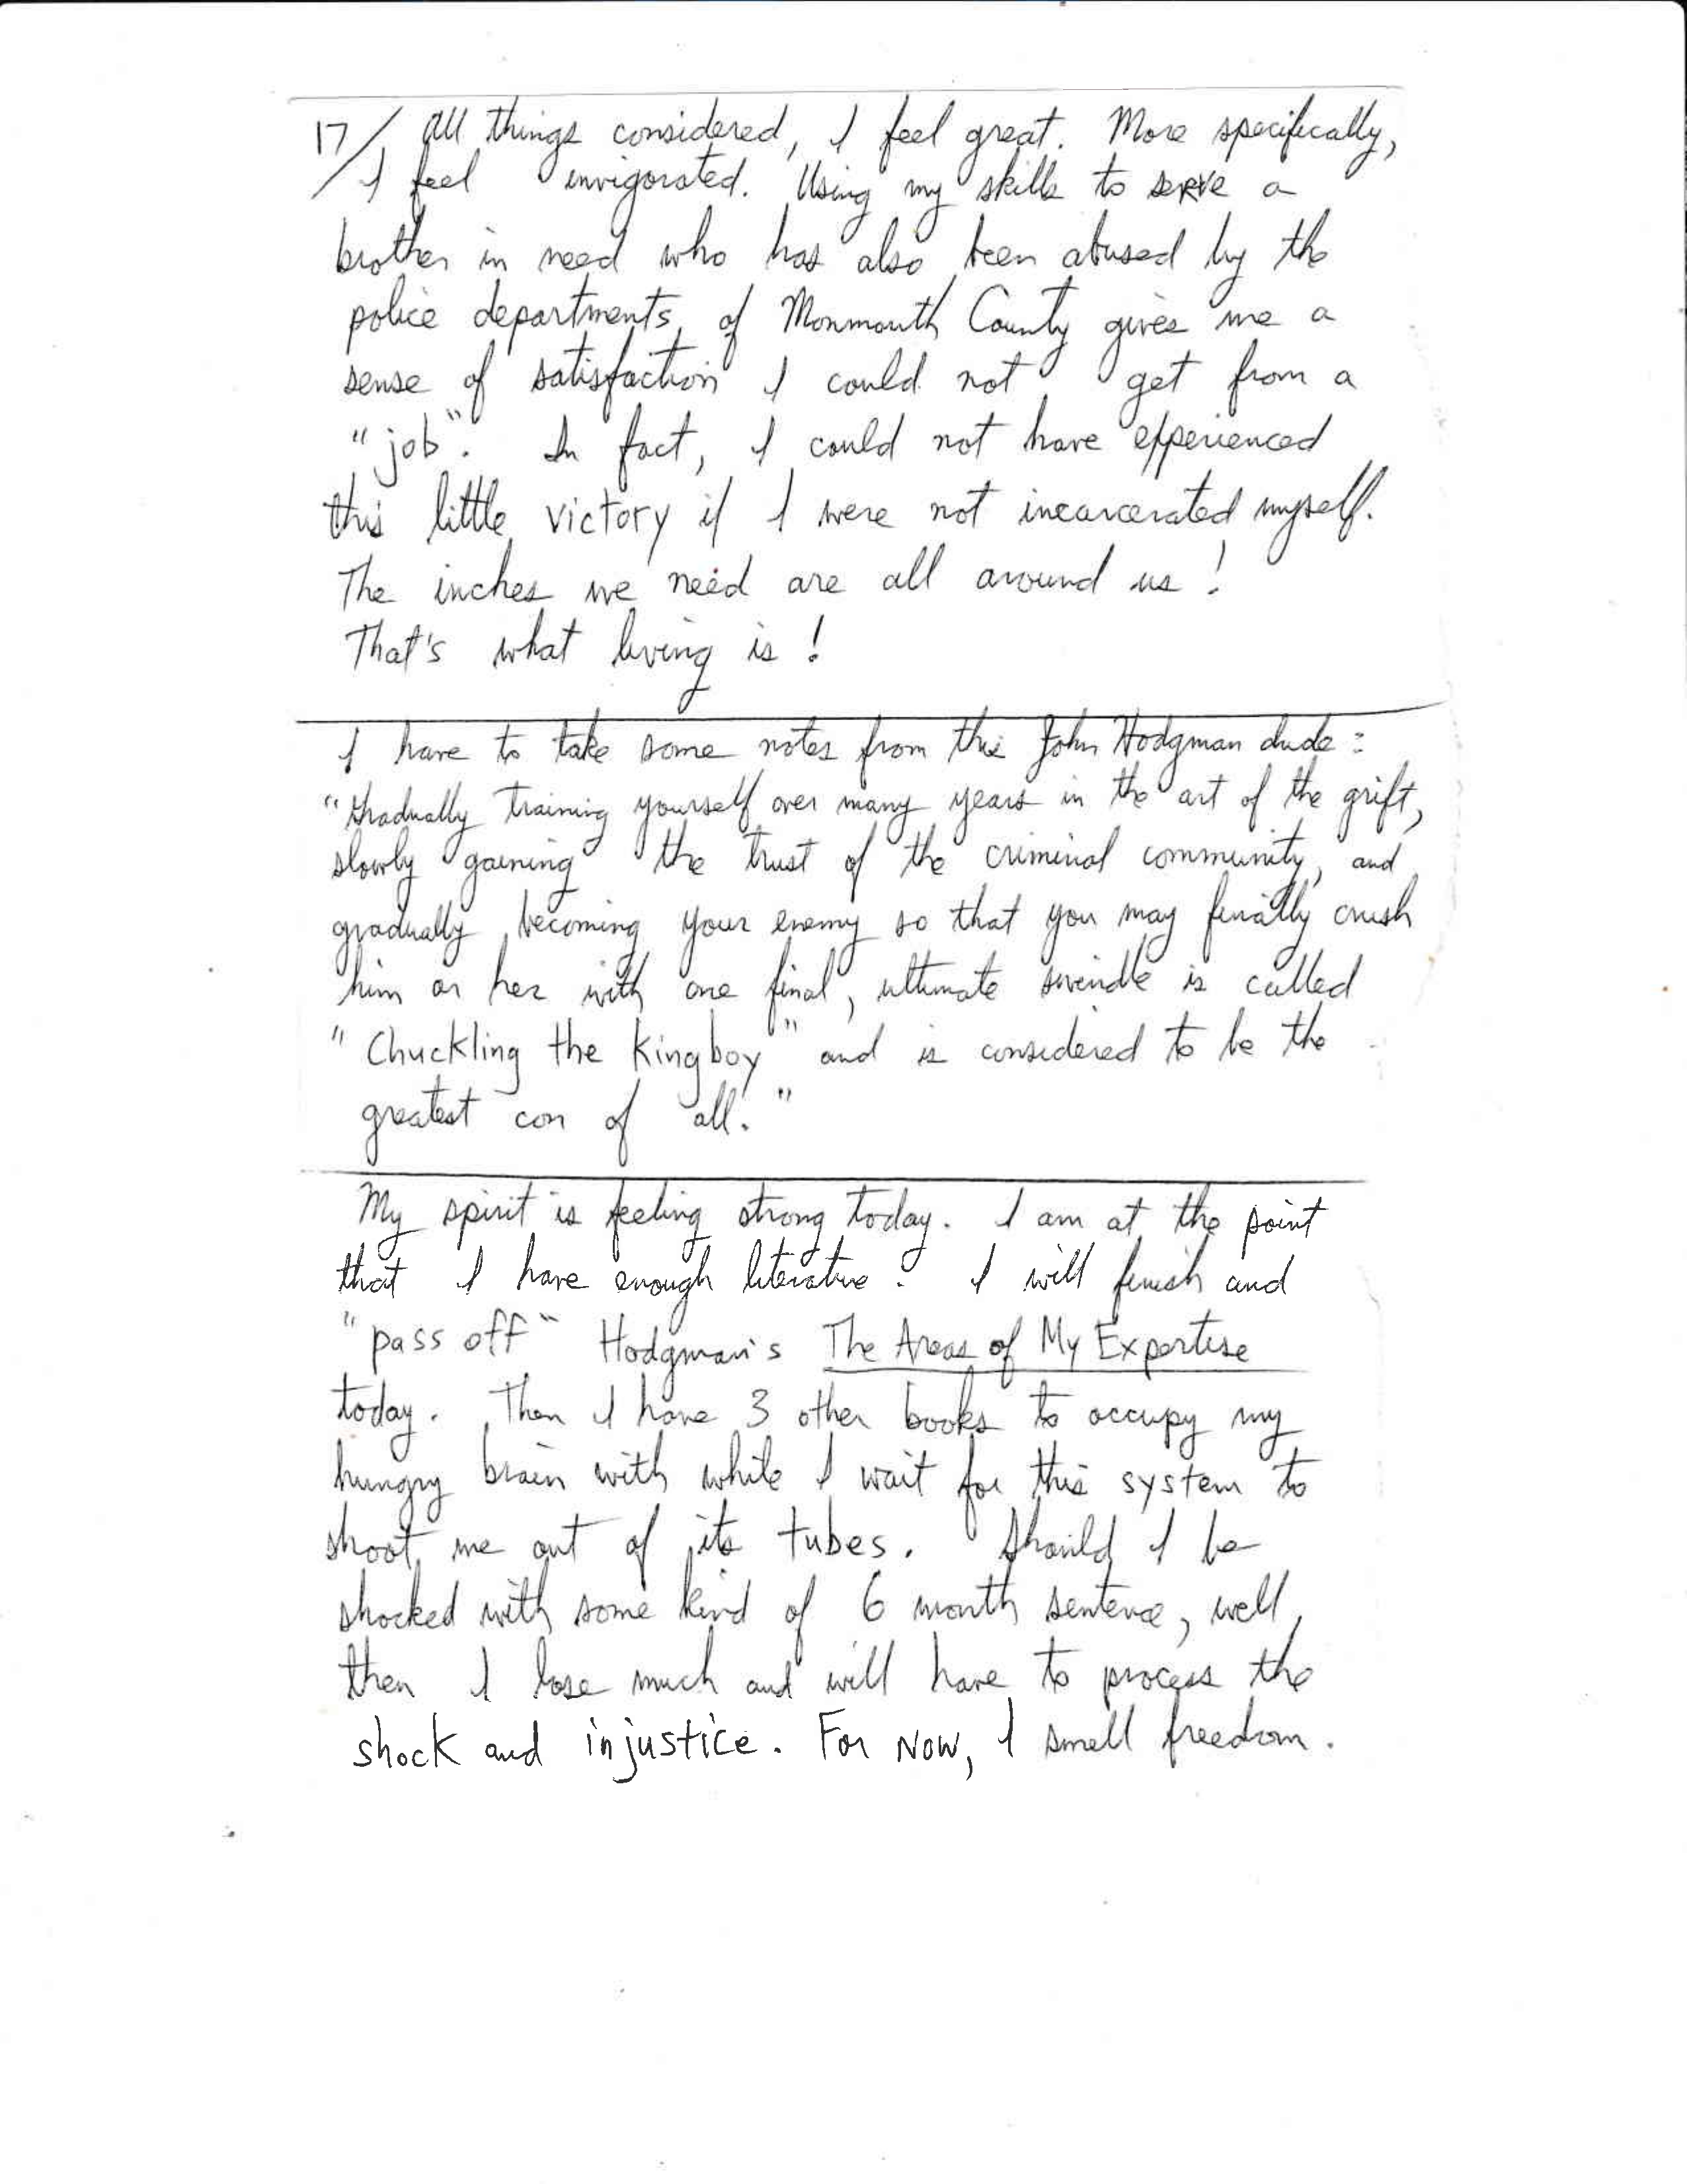 17/ All things considered, I feel great. More specifically,
I feel invigorated. Using my skills to serve a
brother in need who has also been abused by the
police departments of Monmouth County gives me a
sense of satisfaction I could not get from a
"job". In fact, I could not have experienced
this little victory if I were not incarcerated myself.
The inches we need are all around us!
That's what living is!
I have to take some notes from this John Hodgman dude:
"Gradually training yourself over many years in the art of the grift,
slowly gaining the trust of the criminal community, and
gradually becoming your enemy so that you may finally crush
him or her with one final, ultimate swindle is called
"Chuckling the Kingboy" and is considered to be the
greatest con of all."
My spirit is feeling strong today. I am at the point
that I have enough literature. I will finish and
"pass off" Hodgman's The Areas of My Expertise
today. Then I have 3 other books to occupy my
hungry brain with while I wait for this system to
shoot me out of its tubes. Should I be
shocked with some kind of 6 month sentence, well,
then I lose much and will have to process the
shock and injustice. For NOW, I smell freedom.